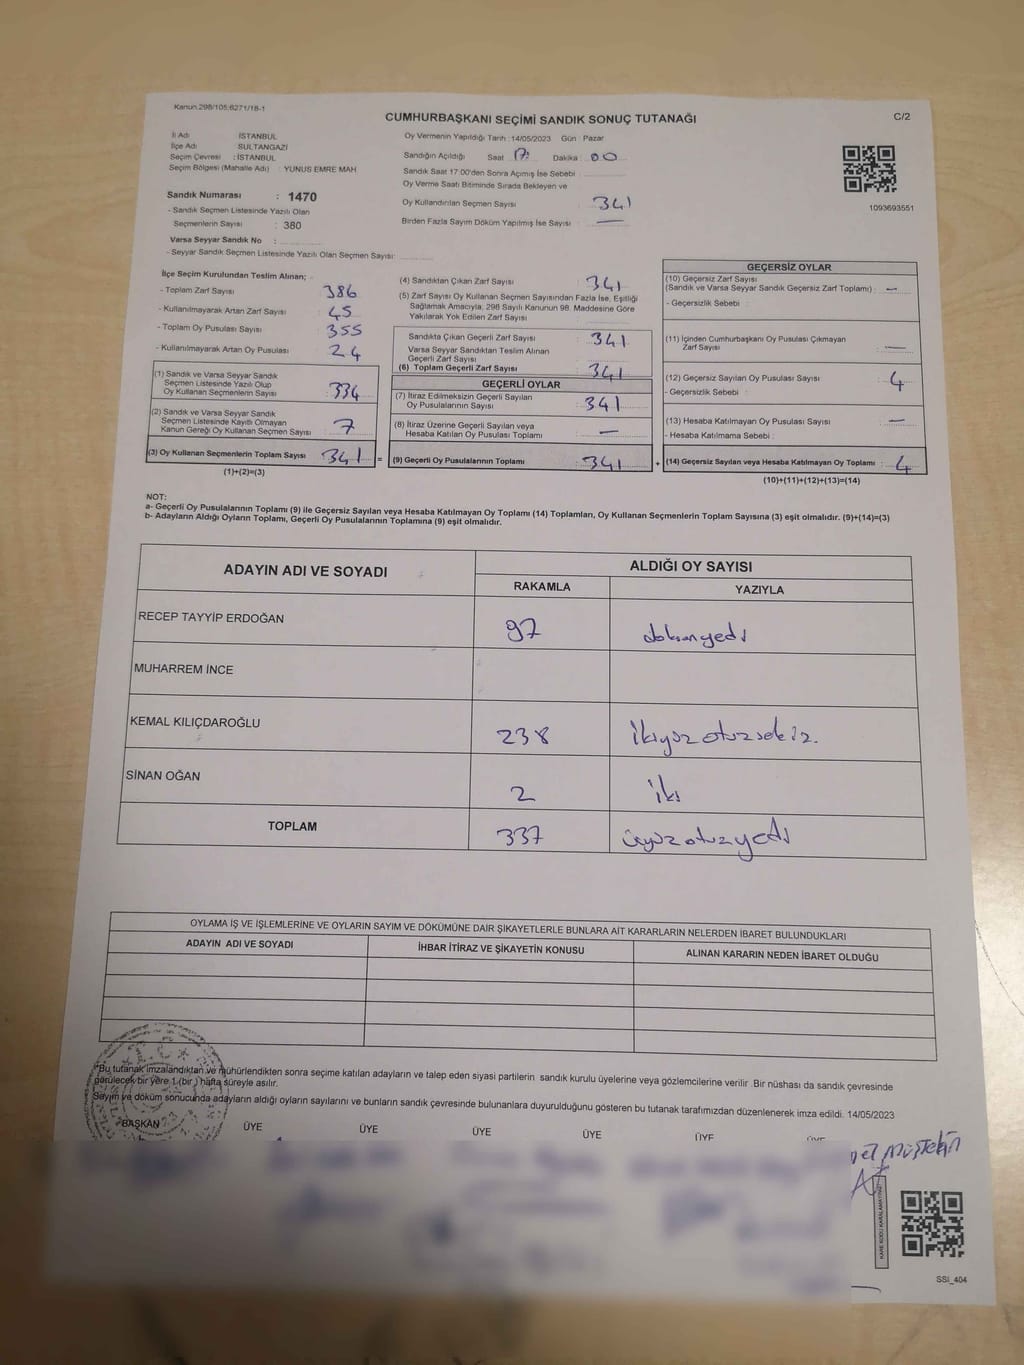 Kanun:298/105,6271/18-1
CUMHURBAŞKANI SEÇİMİ SANDIK SONUÇ TUTANAĞI
C/2
İl Adı : İSTANBUL
İlçe Adı : SULTANGAZİ
Seçim Çevresi : İSTANBUL
Seçim Bölgesi (Mahalle Adı) : YUNUS EMRE MAH
Sandık Numarası : 1470
- Sandık Seçmen Listesinde Yazılı Olan
Seçmenlerin Sayısı : 380
Varsa Seyyar Sandık No :
- Seyyar Sandık Seçmen Listesinde Yazılı Olan Seçmen Sayısı:
Oy Vermenin Yapıldığı Tarih : 14/05/2023 Gün : Pazar
Sandığın Açıldığı Saat : 17 Dakika : 00
Sandık Saat 17:00'den Sonra Açımış İse Sebebi :
Oy Verme Saati Bitiminde Sırada Bekleyen ve
Oy Kullandırılan Seçmen Sayısı : 341
Birden Fazla Sayım Döküm Yapılmış İse Sayısı : —
1093693551
İlçe Seçim Kurulundan Teslim Alınan; -
- Toplam Zarf Sayısı : 386
- Kullanılmayarak Artan Zarf Sayısı : 45
- Toplam Oy Pusulası Sayısı : 355
- Kullanılmayarak Artan Oy Pusulası : 24
(1) Sandık ve Varsa Seyyar Sandık
Seçmen Listesinde Yazılı Olup
Oy Kullanan Seçmenlerin Sayısı : 334
(2) Sandık ve Varsa Seyyar Sandık
Seçmen Listesinde Kayıtlı Olmayan
Kanun Gereği Oy Kullanan Seçmen Sayısı : 7
(3) Oy Kullanan Seçmenlerin Toplam Sayısı : 341 =
(1)+(2)=(3)
(4) Sandıktan Çıkan Zarf Sayısı : 341
(5) Zarf Sayısı Oy Kullanan Seçmen Sayısından Fazla İse, Eşitliği
Sağlamak Amacıyla, 298 Sayılı Kanunun 98. Maddesine Göre
Yakılarak Yok Edilen Zarf Sayısı :
Sandıkta Çıkan Geçerli Zarf Sayısı : 341
Varsa Seyyar Sandıktan Teslim Alınan
Geçerli Zarf Sayısı :
(6) Toplam Geçerli Zarf Sayısı : 341
GEÇERLİ OYLAR
(7) İtiraz Edilmeksizin Geçerli Sayılan
Oy Pusulalarının Sayısı : 341
(8) İtiraz Üzerine Geçerli Sayılan veya
Hesaba Katılan Oy Pusulası Toplamı : —
(9) Geçerli Oy Pusulalarının Toplamı : 341 +
GEÇERSİZ OYLAR
(10) Geçersiz Zarf Sayısı
(Sandık ve Varsa Seyyar Sandık Geçersiz Zarf Toplamı) : —
- Geçersizlik Sebebi :
(11) İçinden Cumhurbaşkanı Oy Pusulası Çıkmayan
Zarf Sayısı : —
(12) Geçersiz Sayılan Oy Pusulası Sayısı : 4
- Geçersizlik Sebebi :
(13) Hesaba Katılmayan Oy Pusulası Sayısı : —
- Hesaba Katılmama Sebebi :
(14) Geçersiz Sayılan veya Hesaba Katılmayan Oy Toplamı : 4
(10)+(11)+(12)+(13)=(14)
NOT:
a- Geçerli Oy Pusulalarının Toplamı (9) ile Geçersiz Sayılan veya Hesaba Katılmayan Oy Toplamı (14) Toplamları, Oy Kullanan Seçmenlerin Toplam Sayısına (3) eşit olmalıdır. (9)+(14)=(3)
b- Adayların Aldığı Oyların Toplamı, Geçerli Oy Pusulalarının Toplamına (9) eşit olmalıdır.
ADAYIN ADI VE SOYADI
ALDIĞI OY SAYISI
RAKAMLA YAZIYLA
RECEP TAYYİP ERDOĞAN 97 doksanyedi
MUHARREM İNCE
KEMAL KILIÇDAROĞLU 238 ikiyüzotuzsekiz.
SİNAN OĞAN 2 iki
TOPLAM 337 üçyüzotuzyedi
OYLAMA İŞ VE İŞLEMLERİNE VE OYLARIN SAYIM VE DÖKÜMÜNE DAİR ŞİKAYETLERLE BUNLARA AİT KARARLARIN NELERDEN İBARET BULUNDUKLARI
ADAYIN ADI VE SOYADI İHBAR İTİRAZ VE ŞİKAYETİN KONUSU ALINAN KARARIN NEDEN İBARET OLDUĞU
*Bu tutanak imzalandıktan ve mühürlendikten sonra seçime katılan adayların ve talep eden siyasi partilerin sandık kurulu üyelerine veya gözlemcilerine verilir. Bir nüshası da sandık çevresinde
görülecek bir yere 1 (bir ) hafta süreyle asılır.
Sayım ve döküm sonucunda adayların aldığı oyların sayılarını ve bunların sandık çevresinde bulunanlara duyurulduğunu gösteren bu tutanak tarafımızdan düzenlenerek imza edildi. 14/05/2023
BAŞKAN ÜYE ÜYE ÜYE ÜYE ÜYE ÜYE
KARE KODU KARALAMAYINIZ
SSİ_404